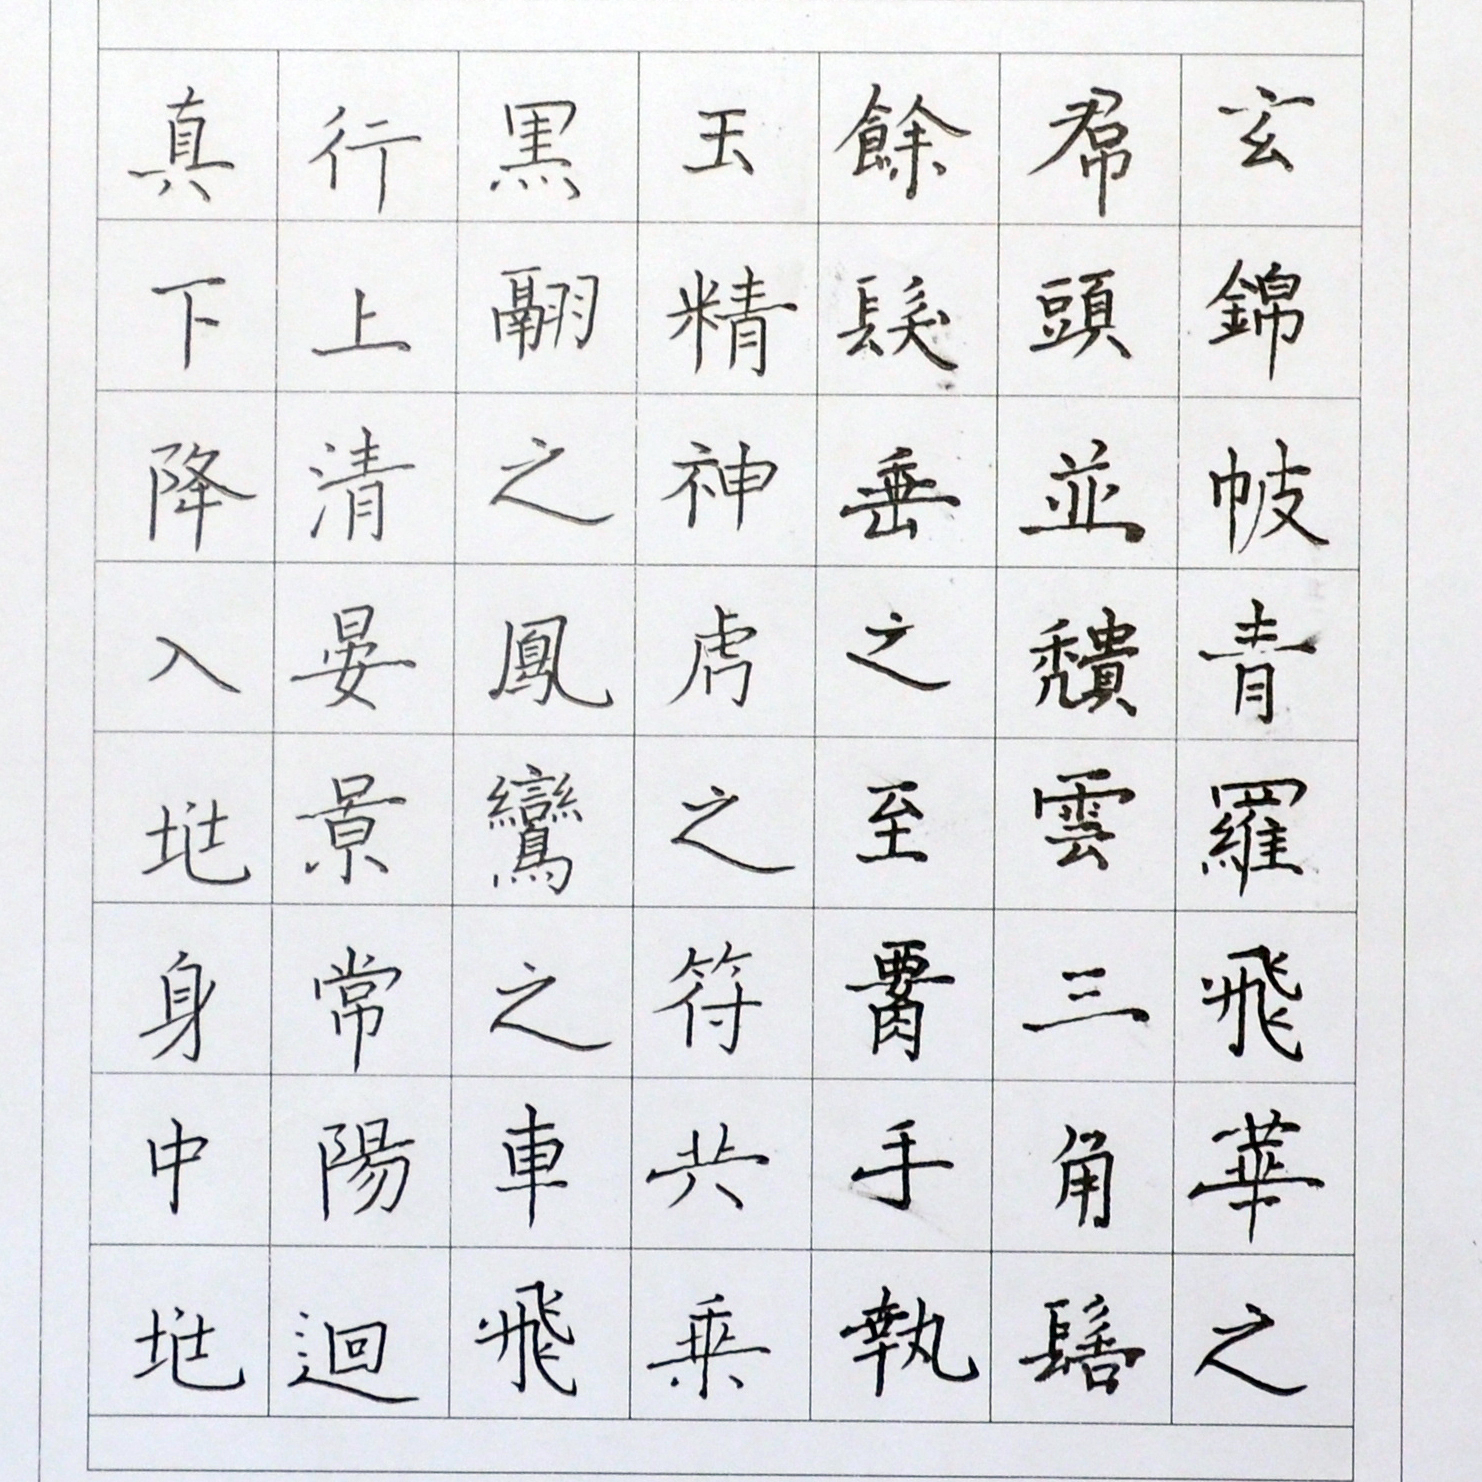 玄錦帔青羅飛華之
帬頭並穨雲三角髻
餘髮垂之至腰手執
玉精神虎之符共乗
黒翮之鳳鸞之車飛
行上清晏景常陽迴
真下降入兆身中兆